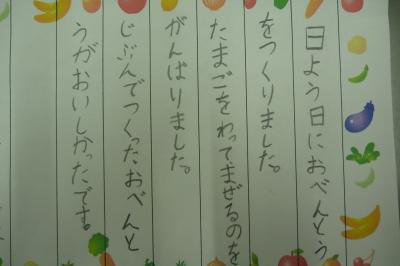 日よう日におべんとう
をつくりました。
たまごをわってまぜるのを
がんばりました。
じぶんでつくったおべんと
うがおいしかったです。